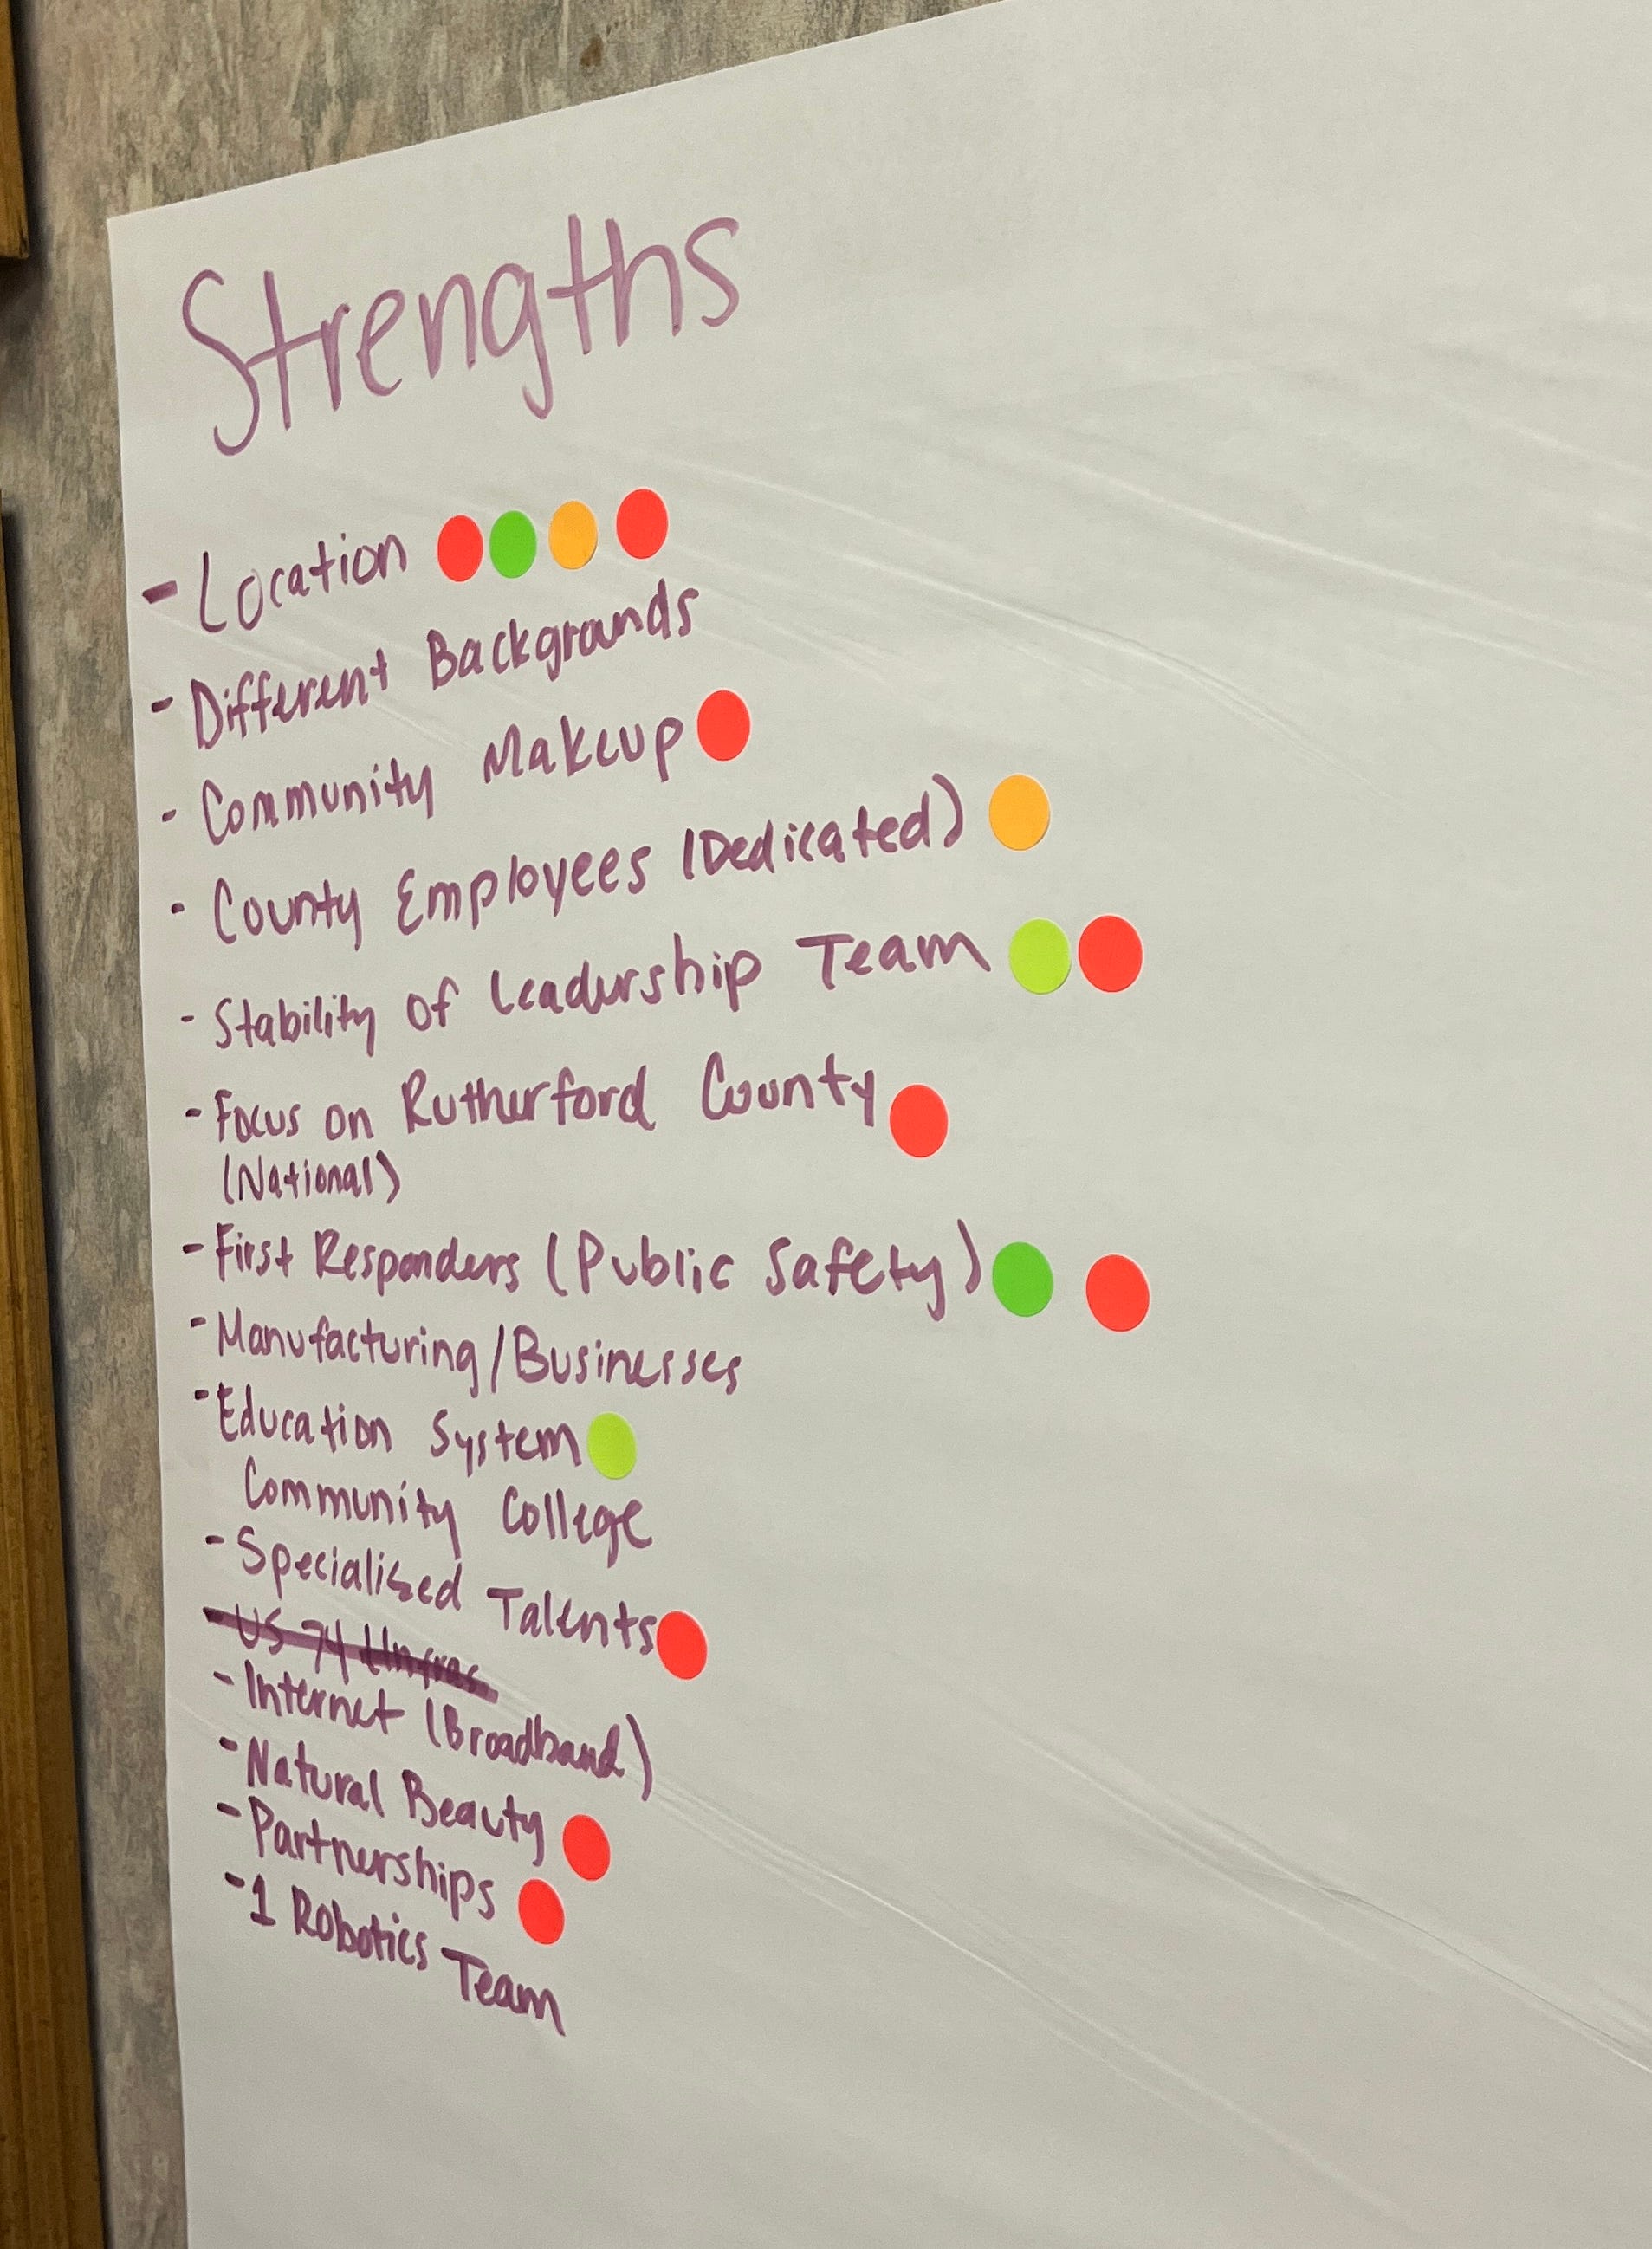 Strengths
- Location
- Different Backgrounds
- Community Makeup
- County Employees (Dedicated)
- Stability of Leadership Team
- Focus on Rutherford County
(National)
- First Responders (Public Safety)
- Manufacturing/Businesses
- Education System
Community College
- Specialized Talents
- US 74
- Internet (Broadband)
- Natural Beauty
- Partnerships
- 1 Robotics Team